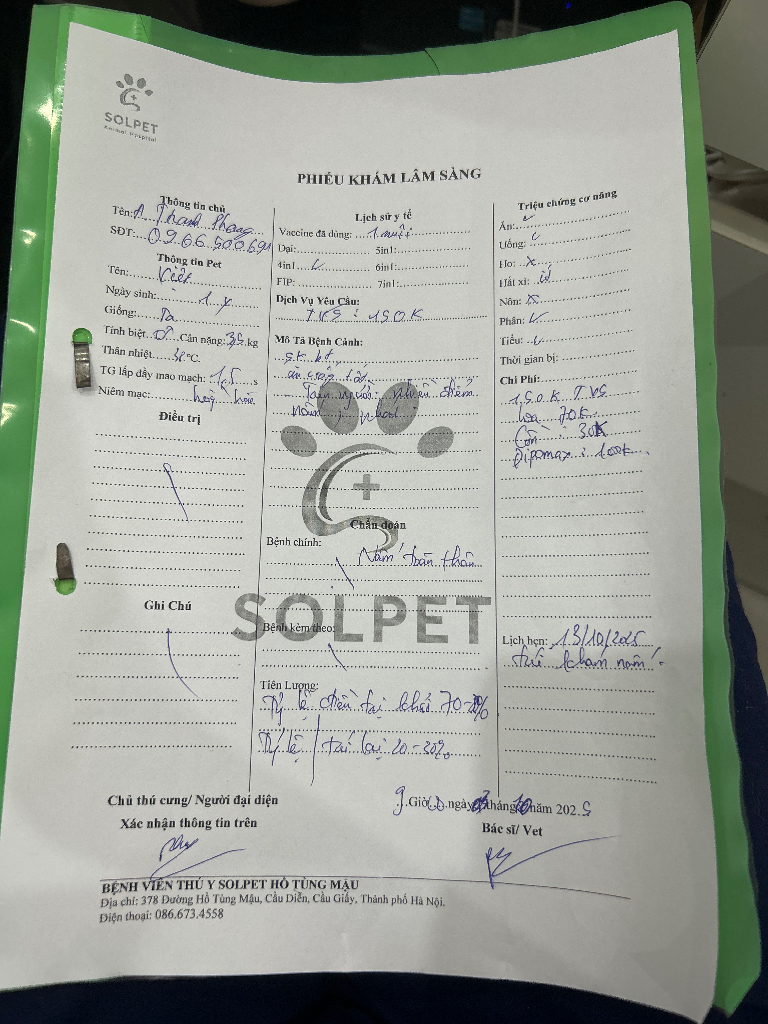 SOLPET
Animal Hospital
PHIẾU KHÁM LÂM SÀNG
Thông tin chủ
Tên: A Thanh Phong
SĐT: 0966.500.691
Thông tin Pet
Tên:
Ngày sinh: 1 y
Giống: Ta
Tính biệt ♂ Cân nặng: kg
Thân nhiệt 38 °C.
TG lấp đầy mao mạch: 1,5 s
Niêm mạc: hồng hào
Điều trị
Ghi Chú
Lịch sử y tế
Vaccine đã dùng: 1 mũi
Dại: 5in1:
4in1 6in1:
FIP: 7in1:
Dịch Vụ Yêu Cầu:
TVS : 150K
Mô Tả Bệnh Cảnh:
SK bt
ăn uống tốt
nhiều điểm
nấm
Chẩn đoán
Bệnh chính:
Nấm toàn thân
SOLPET
Bệnh kèm theo:
Tiên Lượng:
Tỷ lệ điều trị khỏi 70-80%
Tỷ lệ tái lại 20-30%
Triệu chứng cơ năng
Ăn:
Uống:
Ho: x
Hắt xì:
Nôn: x
Phân:
Tiểu:
Thời gian bị:
Chi Phí:
150K TVS
loa 70K
Cồn : 30K
Dipomax : 100k
Lịch hẹn: 13/10/2025
tái khám nấm
Chủ thú cưng/ Người đại diện
Xác nhận thông tin trên
9 Giờ ngày tháng 10 năm 2025
Bác sĩ/ Vet
BỆNH VIỆN THÚ Y SOLPET HỒ TÙNG MẬU
Địa chỉ: 378 Đường Hồ Tùng Mậu, Cầu Diễn, Cầu Giấy, Thành phố Hà Nội.
Điện thoại: 086.673.4558